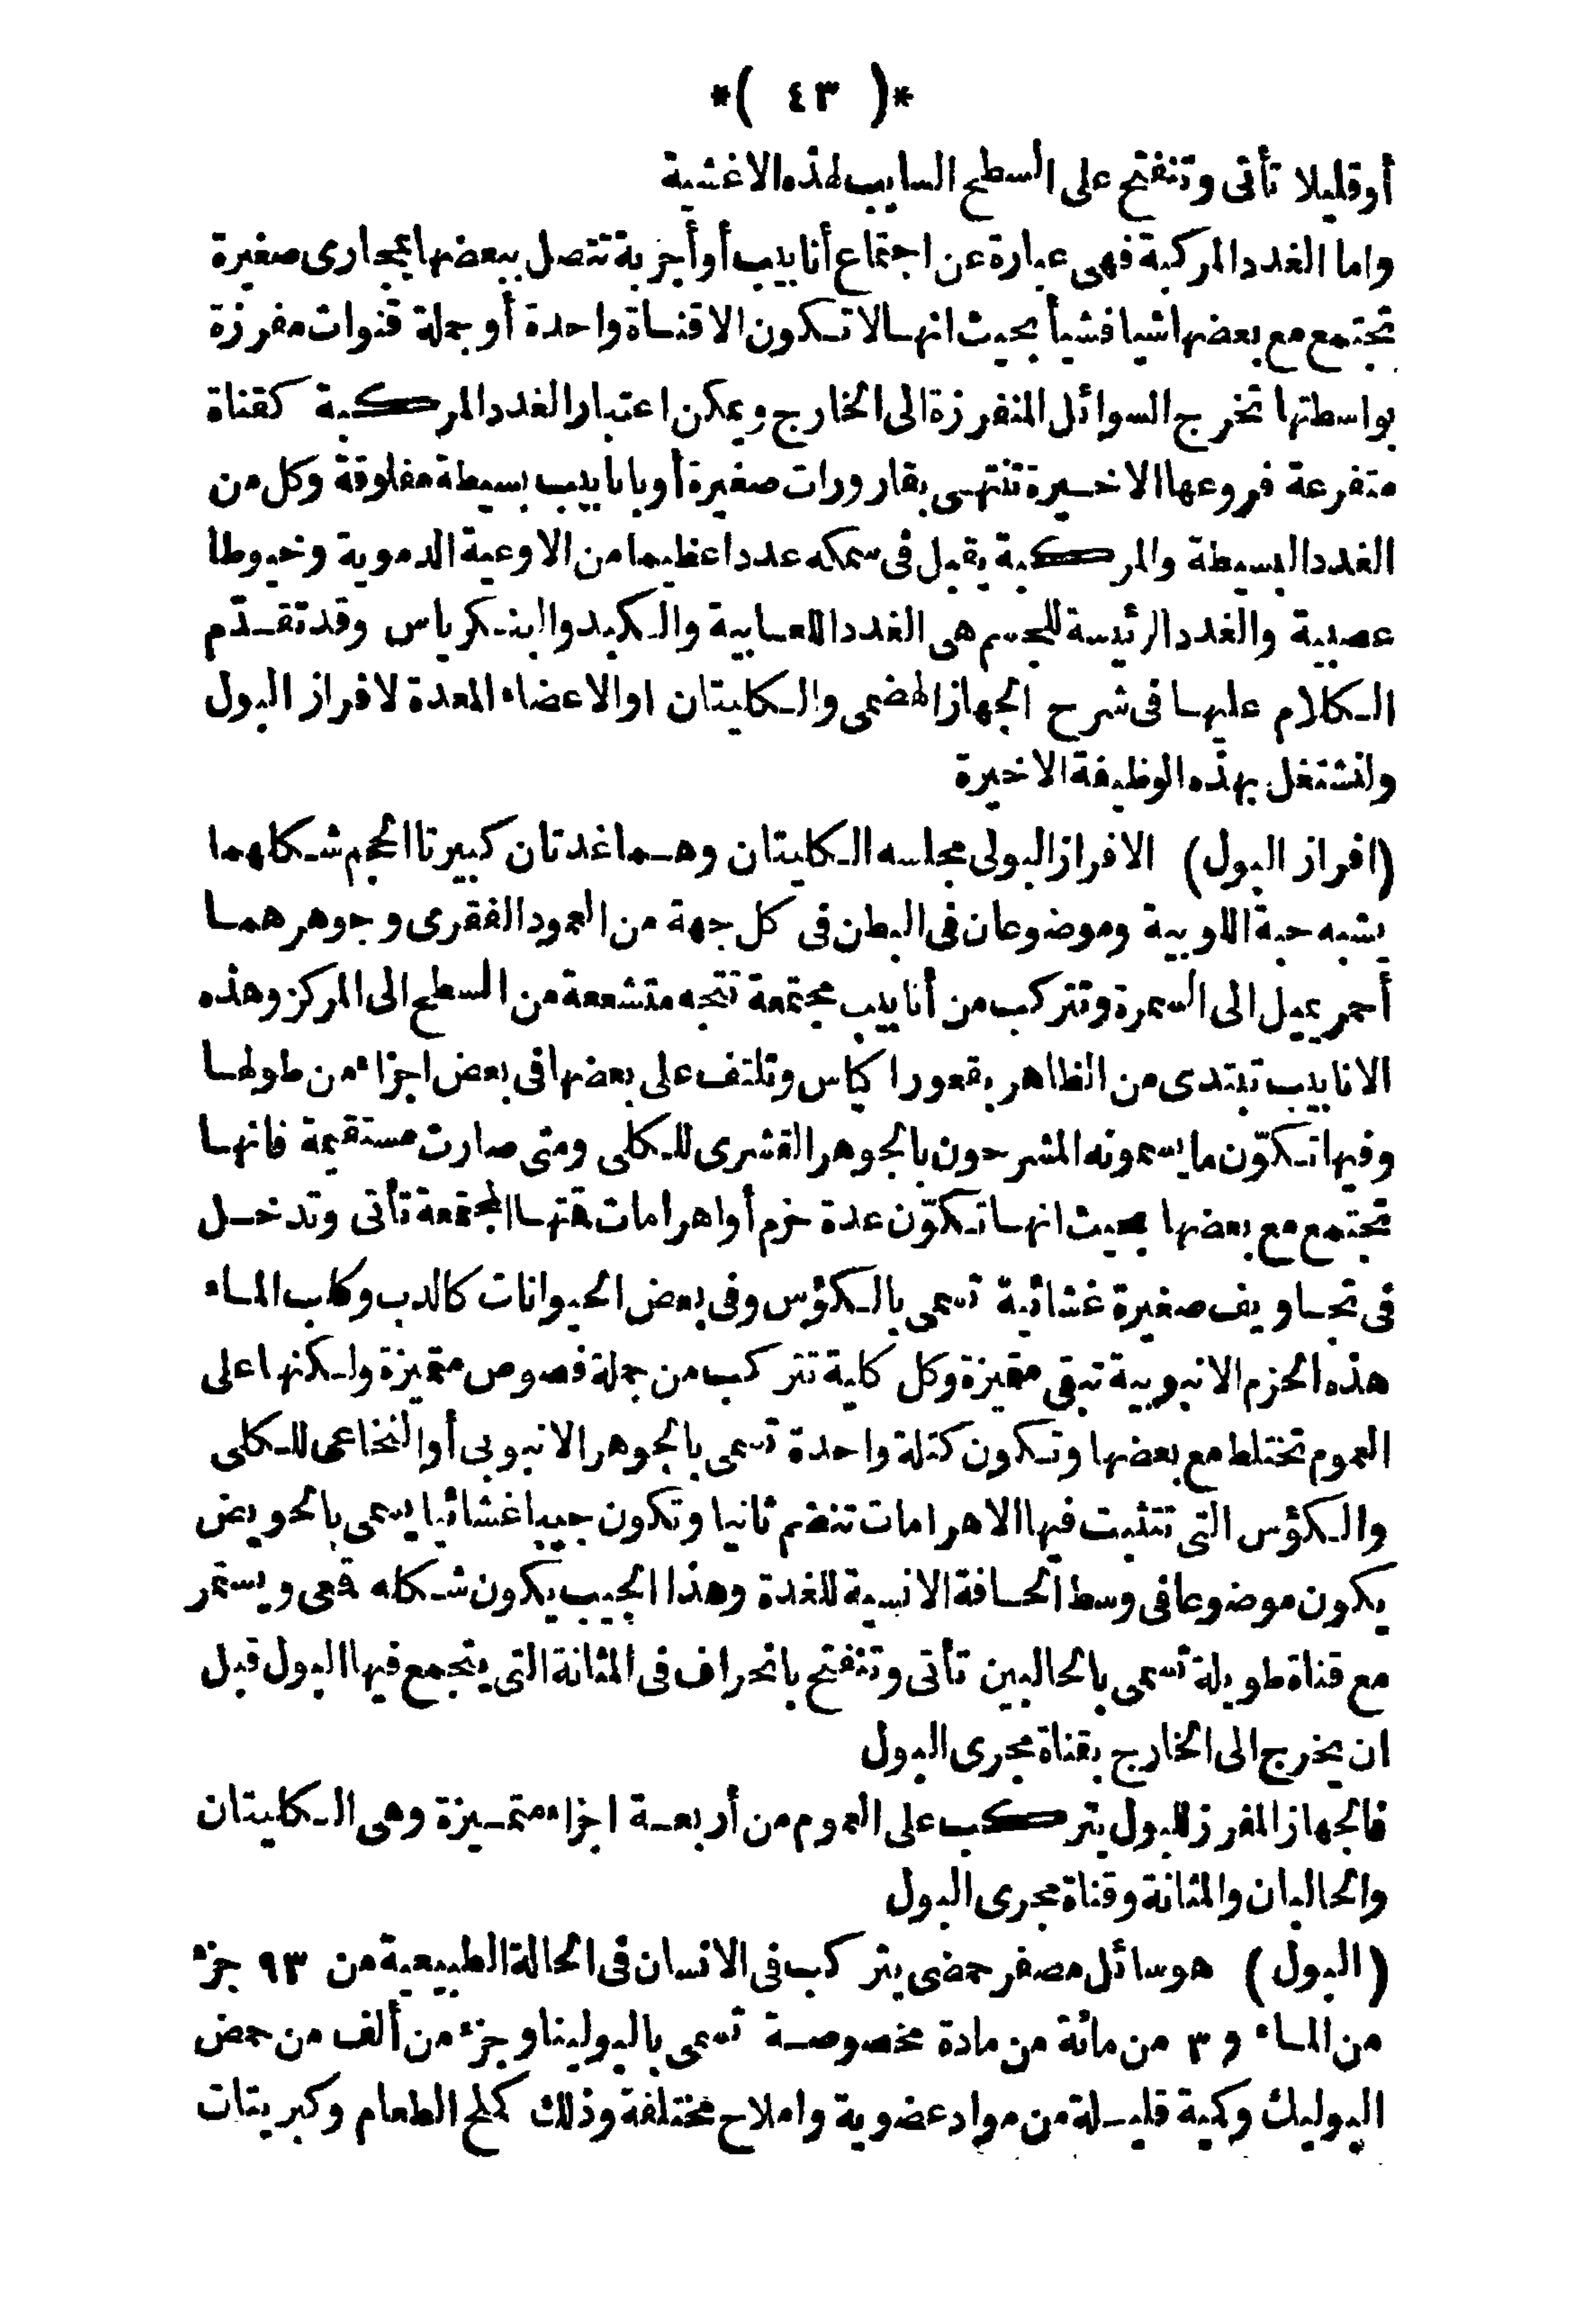 *( ٤٣ )*
أو قليلا تأتى وتنفتح على السطح السايب لهذه الاغشية
واما الغدد المركبة فهى عبارة عن اجتماع أنابيب أو أجربة تتصل ببعضها بمجارى صغيرة
تجتمع مع بعضها شيا فشيأ بحيث انها لا تكون الا قناة واحدة أو جملة قنوات مفرزة
بواسطتها تخرج السوائل المنفرزة الى الخارج ويمكن اعتبار الغدد المركبة كقناة
متفرعة فروعها الاخيرة تنتهى بقارورات صغيرة أو بانابيب بسيطة مغلوقة وكل من
الغدد البسيطة والمركبة يقبل فى سمكه عددا عظيما من الاوعية الدموية وخيوطا
عصبية والغدد الرئيسة للجسم هى الغدد اللعابية والكبد والبنكرياس وقد تقدّم
الكلام عليها فى شرح الجهاز الهضمى والكليتان او الاعضاء المعدة لافراز البول
ولنشتغل بهذه الوظيفة الاخيرة
(افراز البول) الافراز البولى مجلسه الكليتان وهما غدتان كبيرتا الحجم شكلهما
يشبه حبة اللوبية وموضوعان فى البطن فى كل جهة من العمود الفقرى وجوهرهما
أحمر يميل الى السمرة وتتركب من أنابيب مجتمعة تتجه متشععة من السطح الى المركز وهذه
الانابيب تبتدى من الظاهر بقعور اكياس وتلتف على بعضها فى بعض اجزاء من طولها
وفيها تكوّن ما يسمونه المشرحون بالجوهر القشرى للكلى ومتى صارت مستقيمة فانها
تجتمع مع بعضها بحيث انها تكوّن عدة حزم أو اهرامات قمتها المجتمعة تأتى وتدخل
فى تجاويف صغيرة غشائية تسمى بالكؤس وفى بعض الحيوانات كالدب وكلب الماء
هذه الحزم الانبوبية تبقى متميزة وكل كلية تتركب من جملة فصوص متميزة ولكنها على
العموم تختلط مع بعضها وتكون كتلة واحدة تسمى بالجوهر الانبوبى أو النخاعى للكلى
والكؤس التى تتثبت فيها الاهرامات تنضم ثانيا وتكون جيبا غشائيا يسمى بالحويض
يكون موضوعا فى وسط الحافة الانسية للغدة وهذا الجيب يكون شكله قمعى ويستمر
مع قناة طويلة تسمى بالحالبين تأتى وتنفتح بانحراف فى المثانة التى يتجمع فيها البول قبل
ان يخرج الى الخارج بقناة مجرى البول
فالجهاز المفرز للبول يتركب على العموم من أربعة اجزاء متميزة وهى الكليتان
والحالبان والمثانة وقناة مجرى البول
(البول) هو سائل مصفر حمضى يتركب فى الانسان فى الحالة الطبيعية من ٩٣ جزء
من الماء و ٣ من مائة من مادة مخصوصة تسمى بالبولينا وجزء من ألف من حمض
البوليك وكمية قليلة من مواد عضوية واملاح مختلفة وذلك كملح الطعام وكبريتات